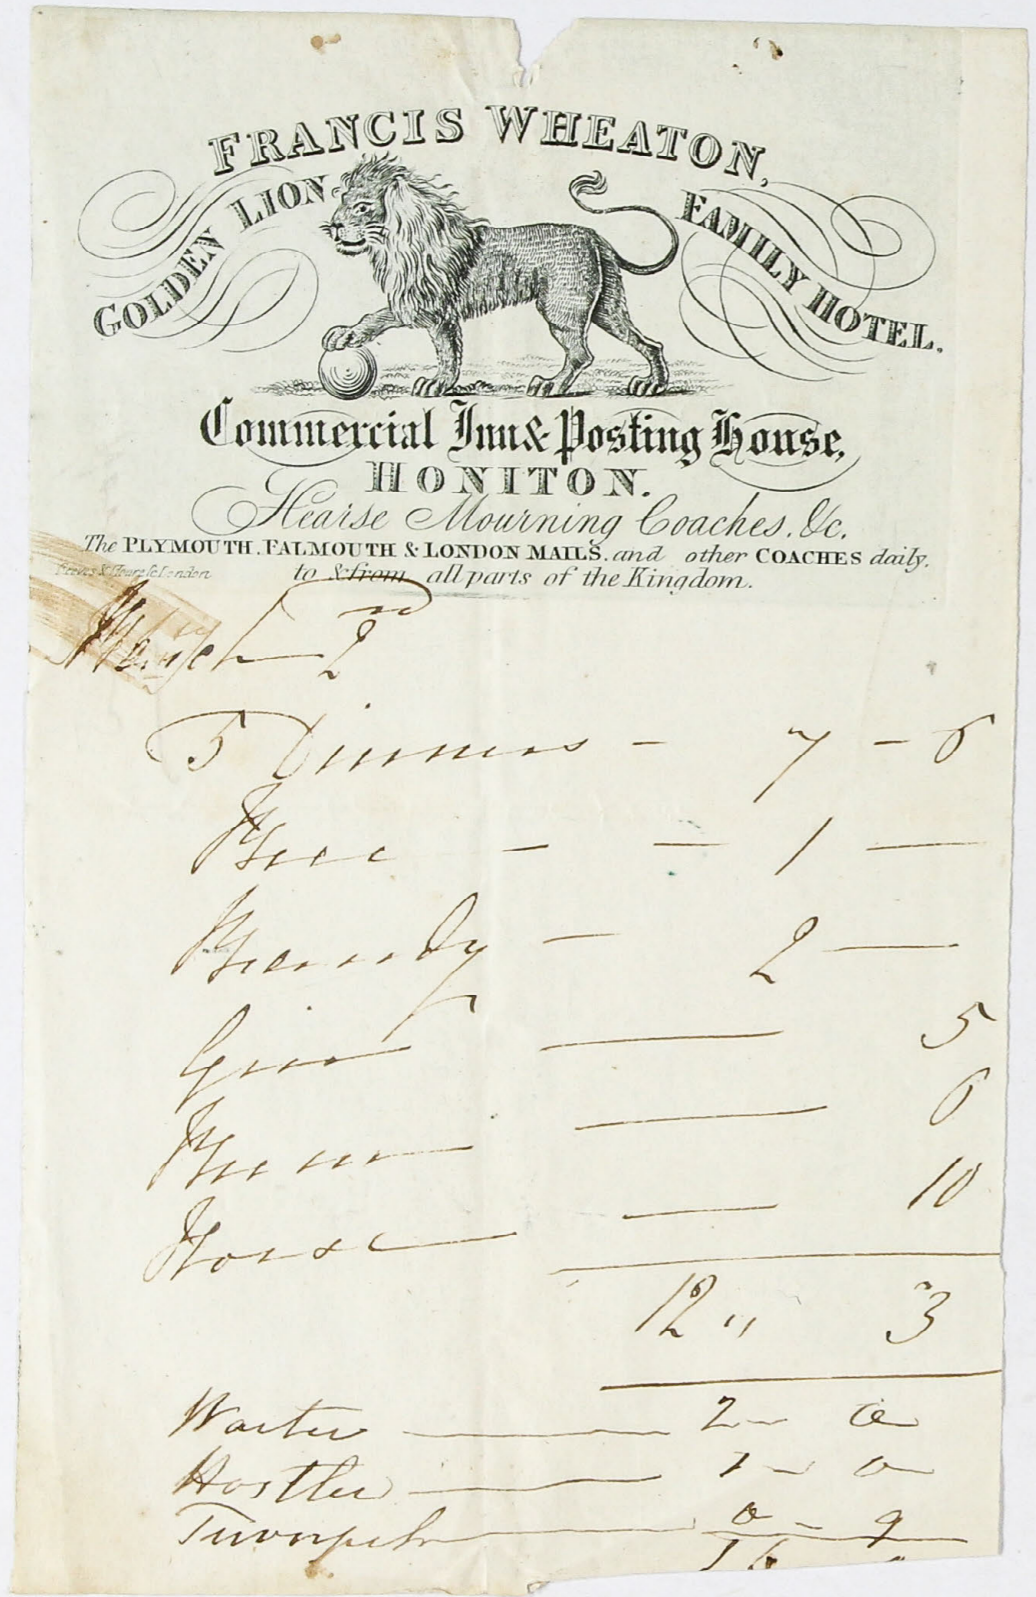 FRANCIS WHEATON,
GOLDEN LION FAMILY HOTEL.
Commercial Inn & Posting House,
HONITON.
Hearse Mourning Coaches. &c.
The PLYMOUTH. FALMOUTH & LONDON MAILS. and other COACHES daily.
to & from all parts of the Kingdom.
London
March 2nd
5 Dinners - 7 - 6
Beer - - 1 -
Brandy - 2 -
Gin - 5
Rum - 6
Horse - 10
12 " 3
Waiter - 2 - 0
Hostler - 1 - 0
Turnpike - 0 - 9